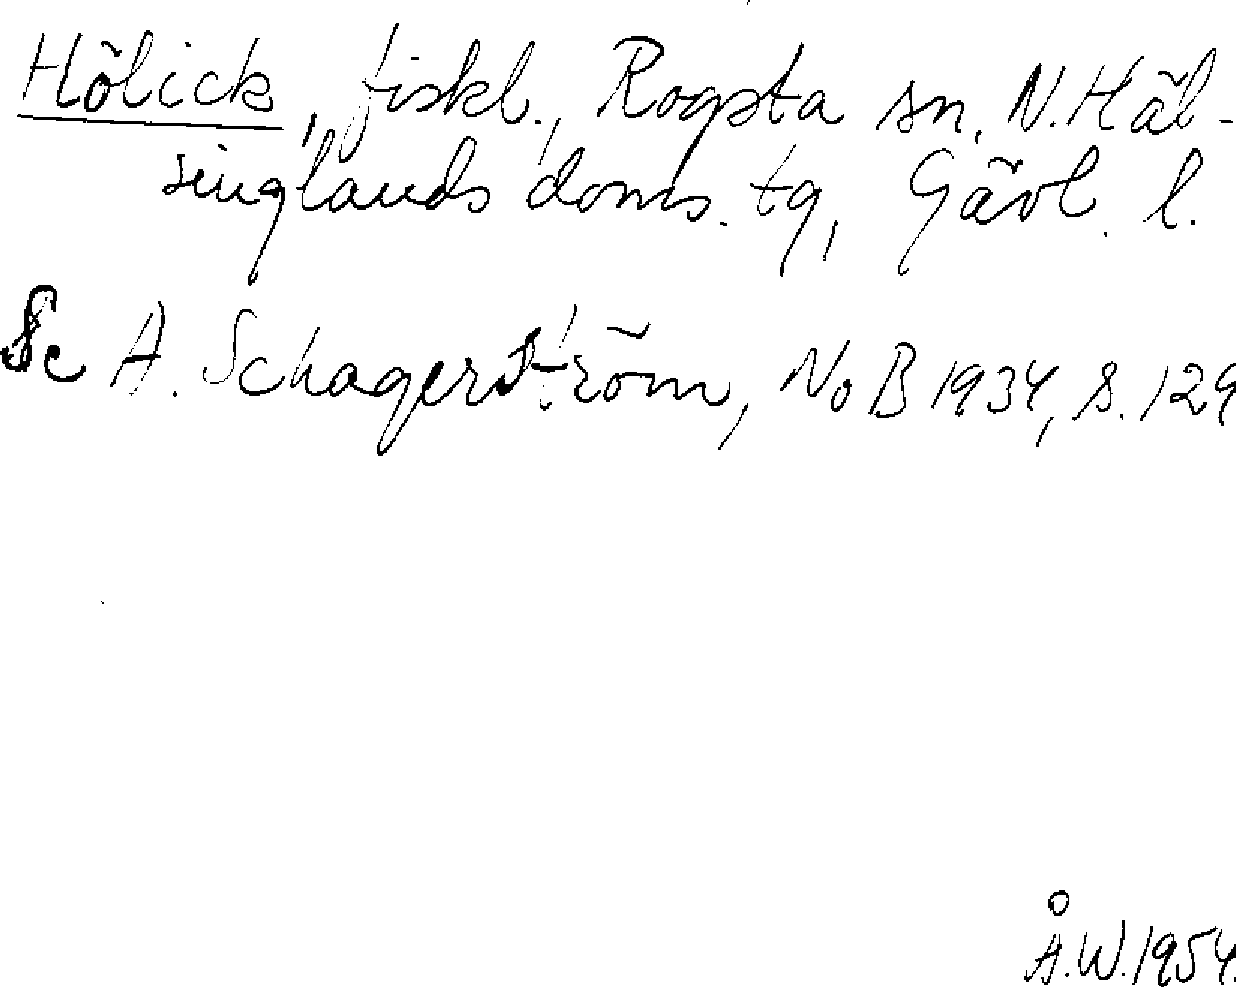 Hölick, fiskl., Rogsta sn, N. Häl-
singlands doms. tg, Gävl. l.
Se A. Schagerström, NoB 1934, s. 129
Å.W. 1954.